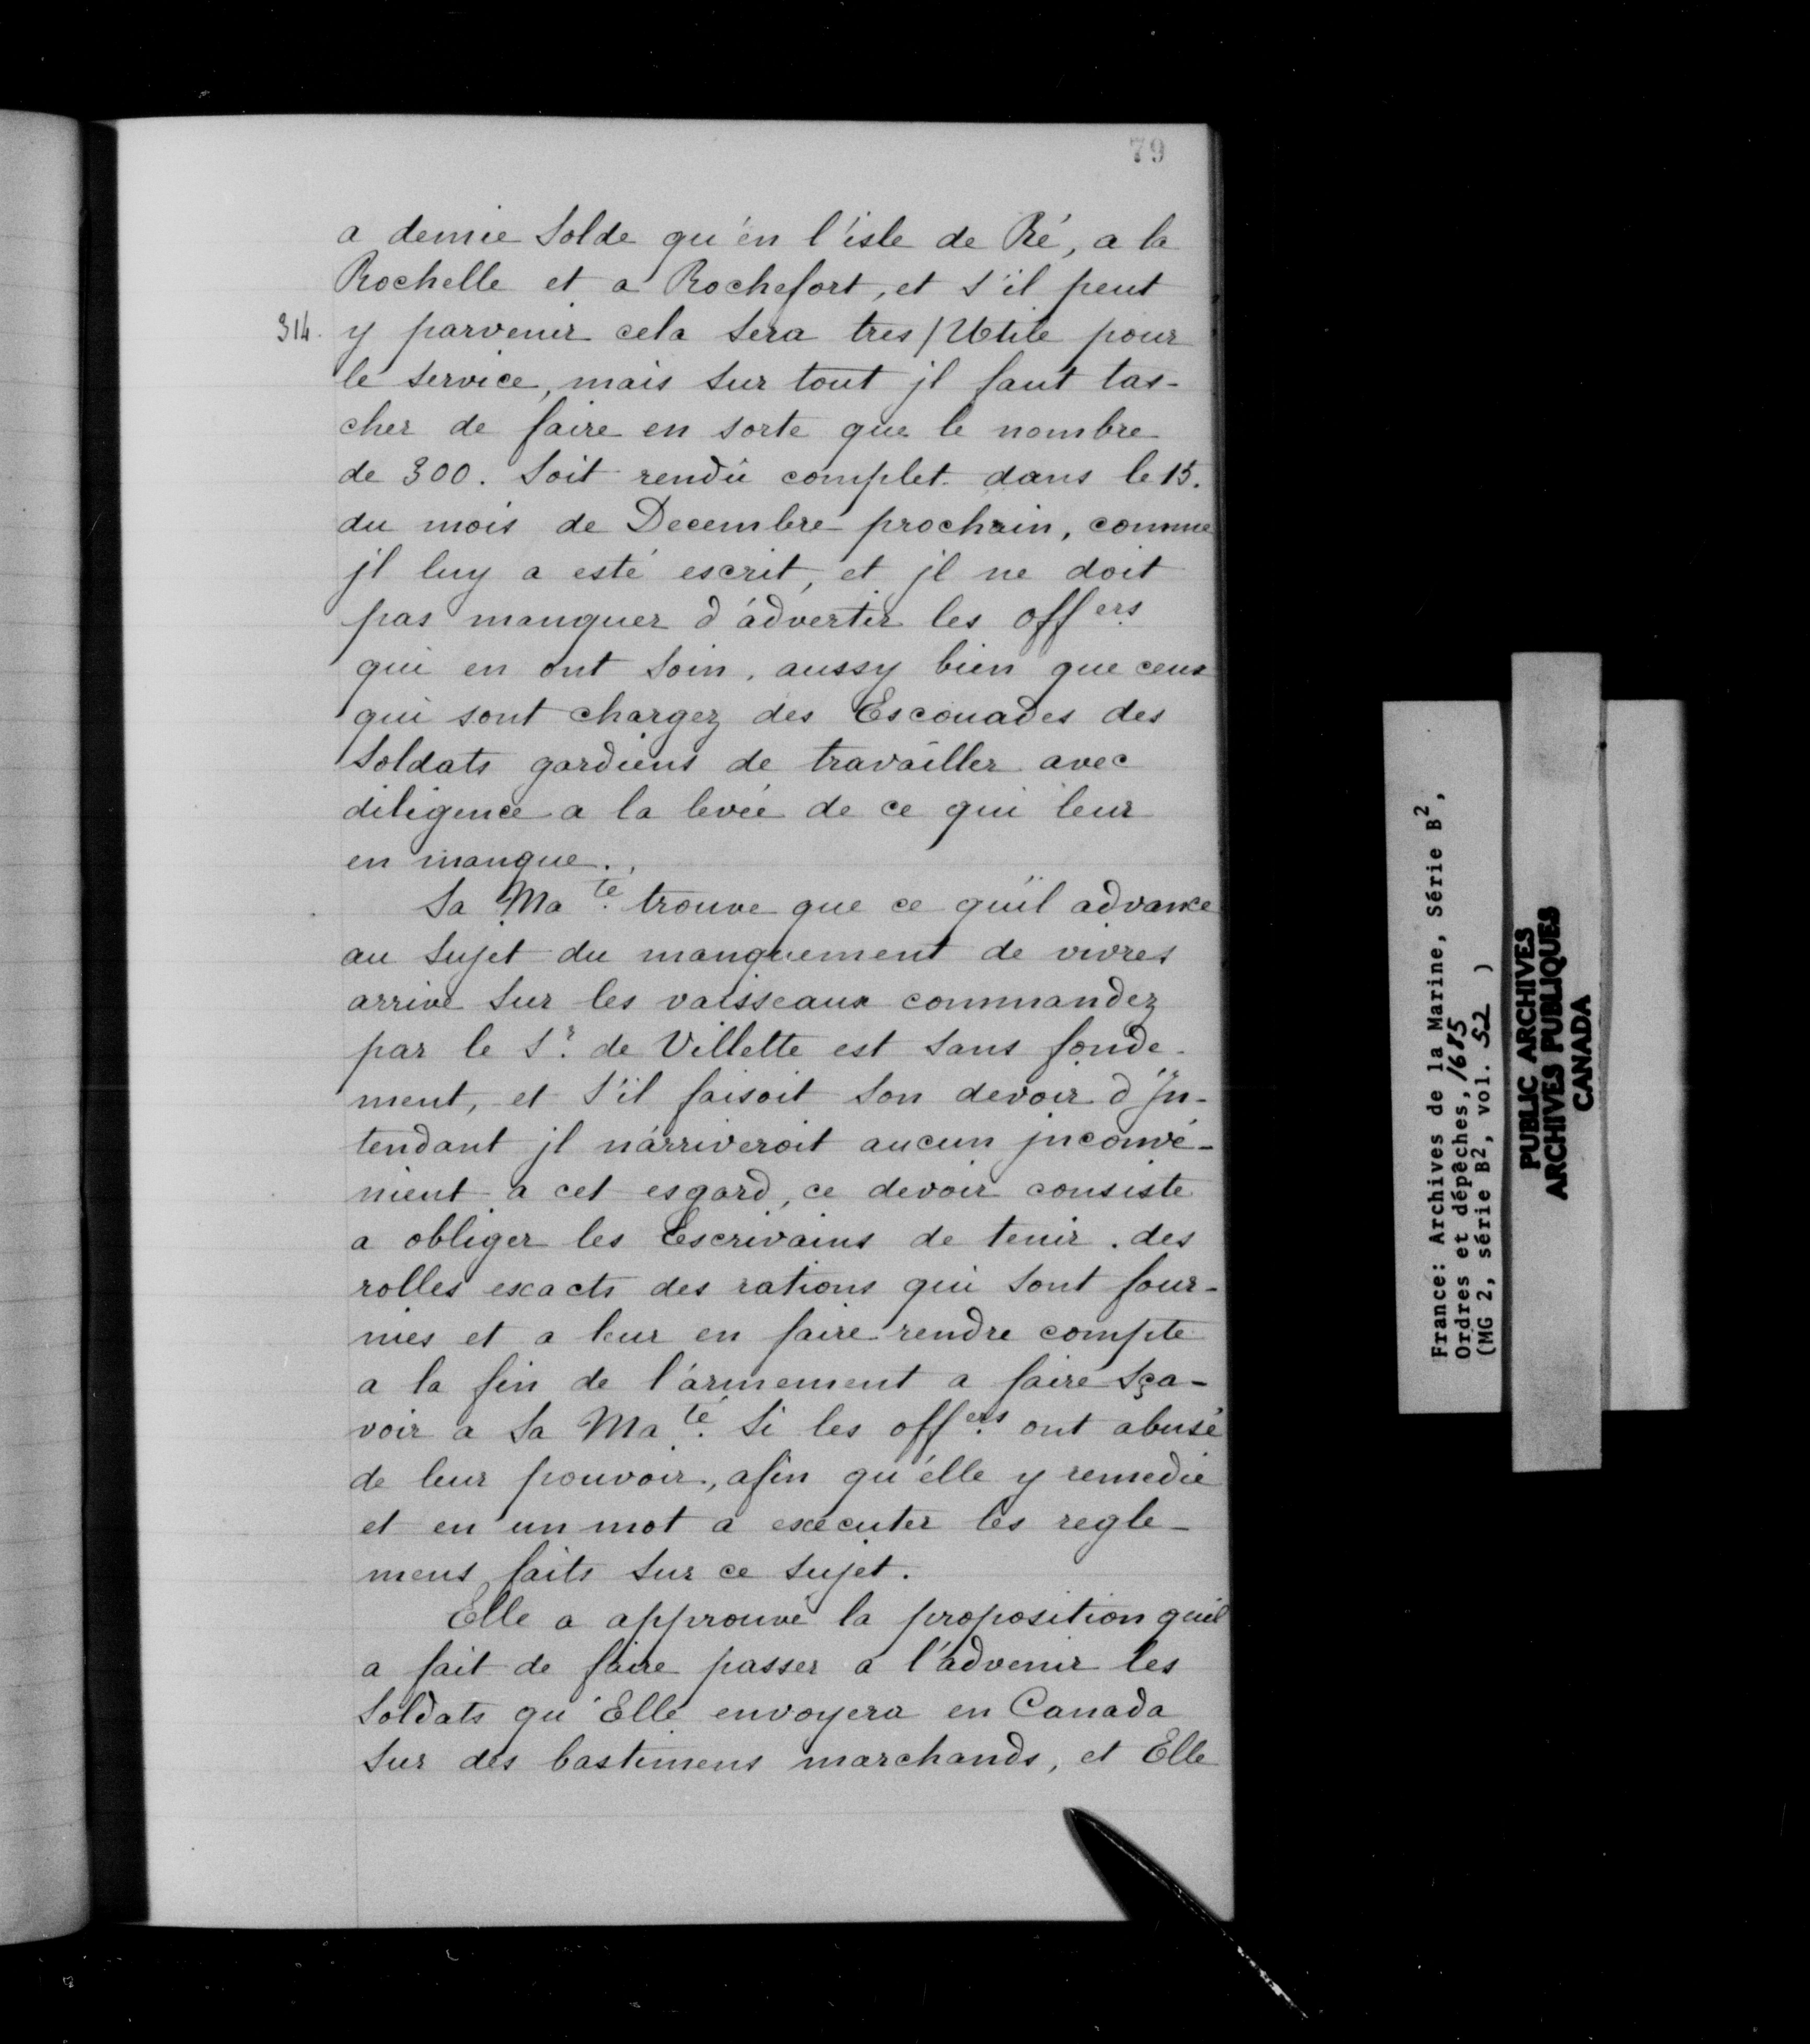 79
a demie Solde qu'én l'isle de Ré, a la
Rochelle et a Rochefort, et s'il peut
314. y parvenir cela sera tres / Utile pour
le service, mais sur tout jl faut tas-
cher de faire en sorte que le nombre
de 300. soit rendu complet dans le 15.
du mois de Decembre prochain, comme
jl luy a esté escrit, et jl ne doit
pas manquer d'ádvertir les offers
qui en ont soin, aussy bien que ceux
qui sont chargez des Escouades des
Soldats gardiens de travailler avec
diligence a la levée de ce qui leur
en manque.
Sa Maté trouve que ce qu'il advance
au sujet du manquement de vivres
arrivé sur les vaisseaux commandez
par le Sr. de Villette est sans fonde-
ment, et s'il faisoit son devoir d'In-
tendant jl n'árriveroit aucun jnconvé-
nient a cet esgard, ce devoir consiste
a obliger les Escrivains de tenir des
rolles exacts des rations qui sont four-
nies et a leur en faire rendre compte
a la fin de l'ármement a faire sça-
voir a Sa Maté. si les offers. ont abusé
de leur pouvoir, afin qu'élle y remedie
et en un mot a executer les regle-
mens faits sur ce sujet.
Elle a approuvé la proposition qu'il
a fait de faire passer a l'ádvenir les
Soldats qu'Elle envoyera en Canada
sur des bastimens marchands, et Elle
France: Archives de la Marine, Série B2,
Ordres et dépêches, 1685
(MG 2, série B2, vol. 52 )
PUBLIC ARCHIVES
ARCHIVES PUBLIQUES
CANADA